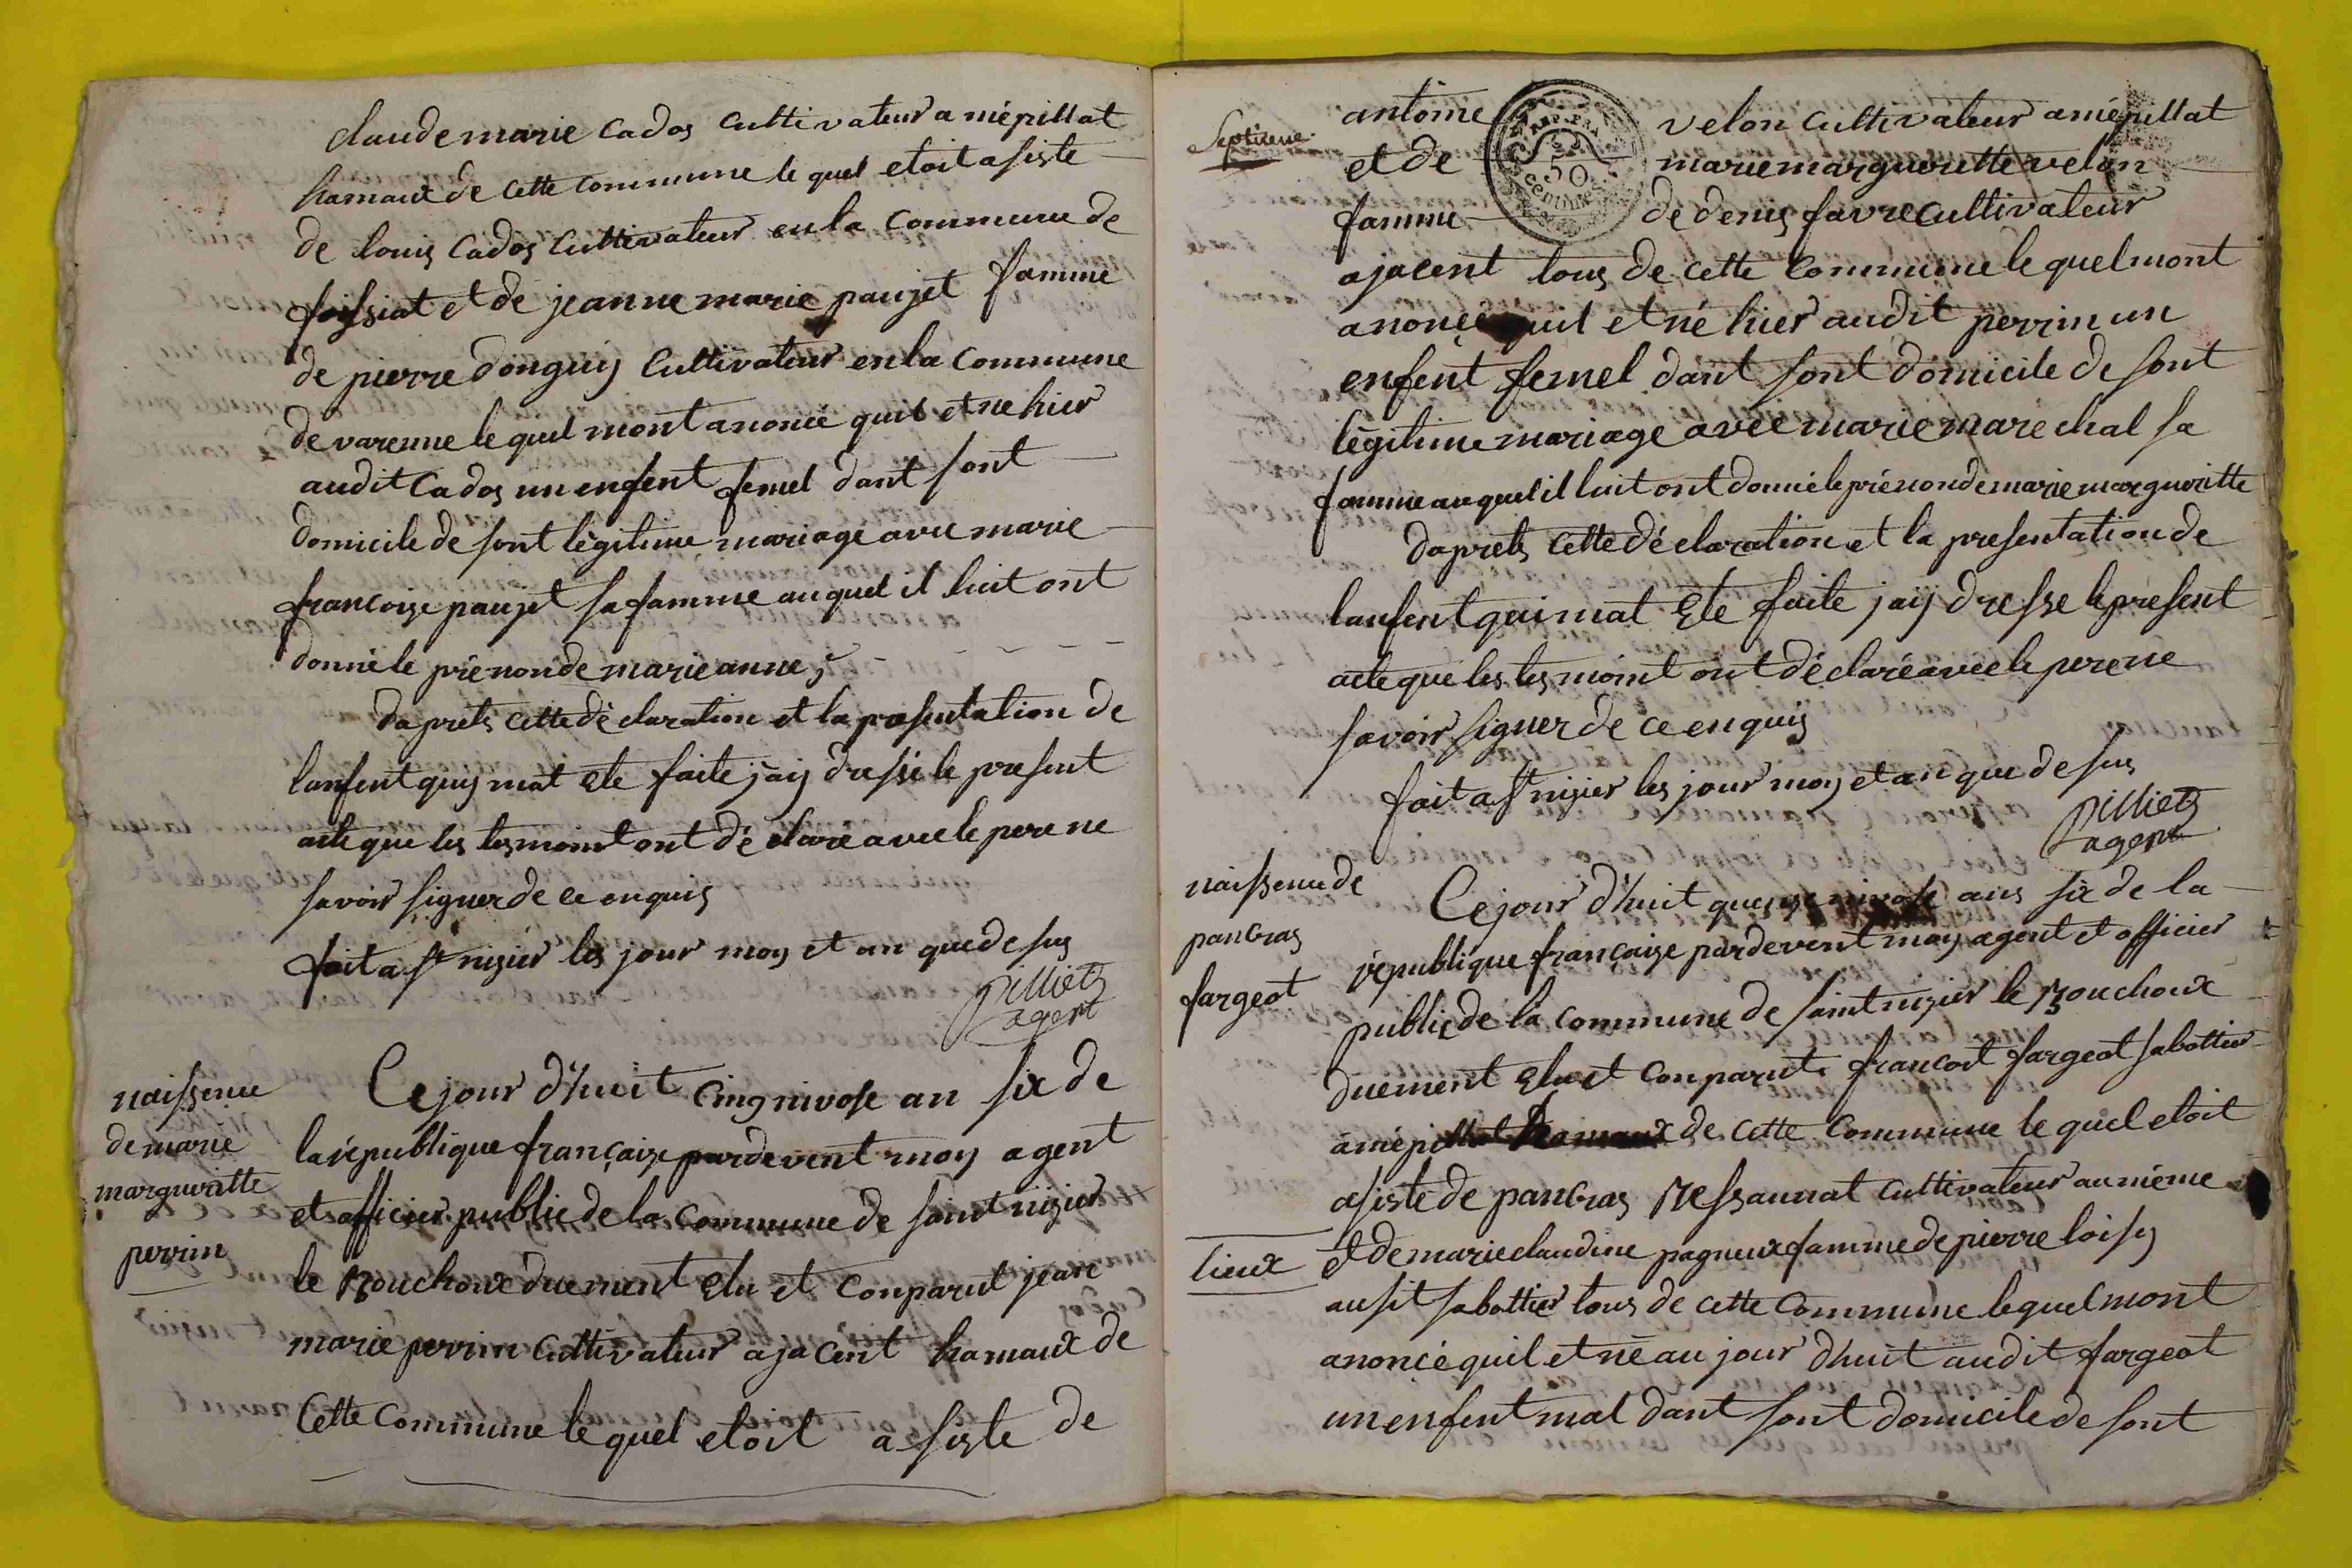 claude marie Cados Cultivateur a mépillat
hamaux de cette commune le quel etoit asiste
de louis Cados Cultivateur en la Commune de
foissiat et de jeanne marie paujet famme
de pierre donguy Cultivateur en la Commune
de varenne le quel mont anoncé quil et ne hier
audit Cados un enfent femel dant sont
domicile de sont légitime mariage avec marie
francoise paujet sa famme au quel il luit ont
donné le prénon de marie anne
daprets cette déclaration et la presentation de
lanfent quy mat ete faite jaij dressé le present
acte que les tesmoint ont déclaré avec le pere ne
savoir signer de ce enquis
fait a st nizier les jour moy et an que de sus
pilliet
agent
naissence
de marie
margueritte
perrin
Ce jour d'huit Cinq nivose an six de
la république française pardevent moy agent
et officier public de la Commune de saint nizier
le Bouchoux duement Elu et Conparut jean
marie perrin cultivateur a jacent hamaux de
Cette Commune le quel etoit asiste de
Septieme
antoine velon Cultivateur a mépillat
et de marie margueritte velon
REP. FRA.
50
centimes
famme de denis favre cultivateur
a jacent tous de cette Commune le quel mont
anoncé quil et né hier audit perrin un
enfent femel dant sont domicile de sont
légitime mariage avec marie marechal sa
famme au quel il luit ont donné le prénon de marie margueritte
daprets cette déclaration et la presentation de
lanfent qui mat Ete faite jaij dresse le present
acte que les tesmoint ont déclaré avec le pere ne
savoir signer de ce enquis
fait a st nizier les jour moy et an que de sus
pilliet
agent
naissence de
pancras
fargeot
Ce jour d'huit quenze nivose ans six de la
république française pardevent moy agent et officier
public de la Commune de saint nizier le Bouchoux
duement Elu et Conparut francoit fargeot sabottier
a mépillat hamaux de cette Commune le quel etoit
asiste de pancras Ressaunat cultivateur au même
lieux
et de marie claudine pagneux famme de pierre loisy
ausit sabottier tous de cette Commune le quel mont
anoncé quil et né au jour d'huit audit fargeot
un enfent mal dant sont domicile de sont